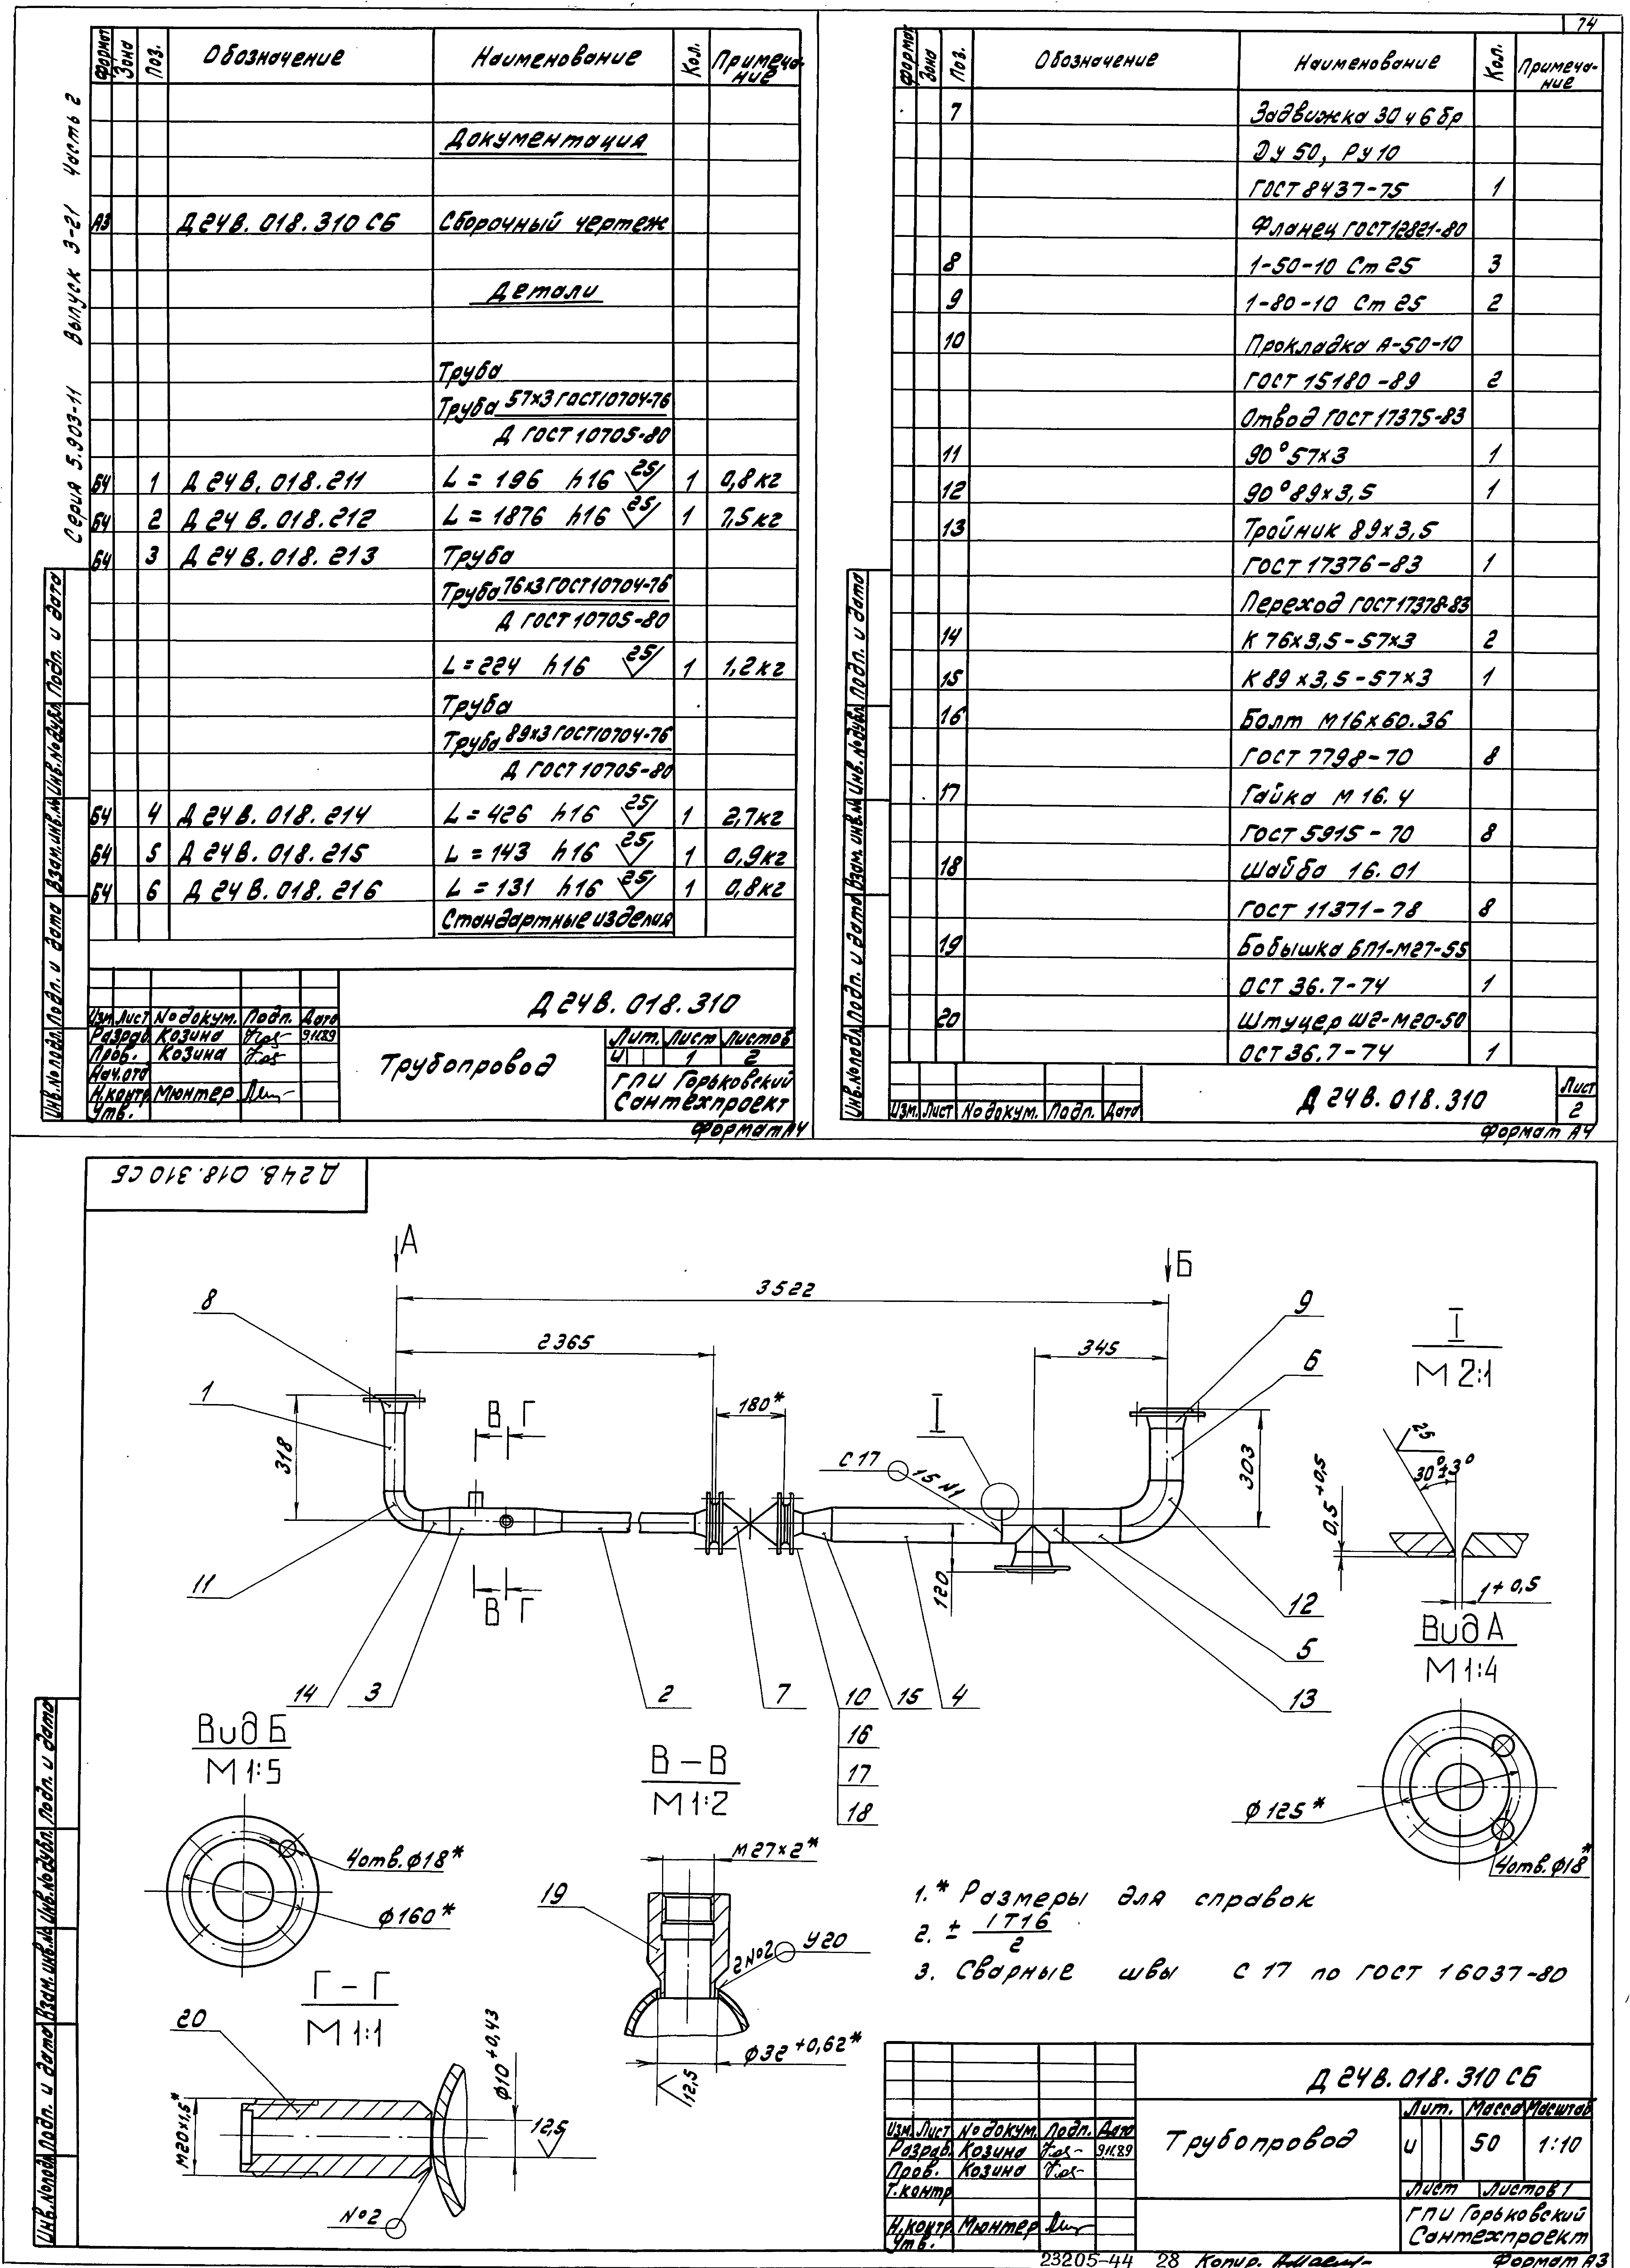 74
Серия 5.903-11 Выпуск 3-21 Часть 2
Формат Зона Поз. Обозначение Наименование Кол. Примеча-ние
Документация
А3 Д 24 В. 018. 310 СБ Сборочный чертеж
Детали
Труба
Труба 57х3 ГОСТ 10704-76
Д ГОСТ 10705-80
БЧ 1 Д 24 В. 018. 211 L = 196 h16 25 1 0,8 кг
БЧ 2 Д 24 В. 018. 212 L = 1876 h16 25 1 7,5 кг
БЧ 3 Д 24 В. 018. 213 Труба
Труба 76х3 ГОСТ 10704-76
Д ГОСТ 10705-80
L = 224 h16 25 1 1,2 кг
Труба
Труба 89х3 ГОСТ 10704-76
Д ГОСТ 10705-80
БЧ 4 Д 24 В. 018. 214 L = 426 h16 25 1 2,7 кг
БЧ 5 Д 24 В. 018. 215 L = 143 h16 25 1 0,9 кг
БЧ 6 Д 24 В. 018. 216 L = 131 h16 25 1 0,8 кг
Стандартные изделия
Инв.№подл. Подп. и дата Взам.инв.№ Инв.№дубл. Подп. и дата
Д 24 В. 018. 310
Изм. Лист № докум. Подп. Дата
Разраб. Козина 9.11.89
Пров. Козина
Нач.отд
Н.контр. Мюнтер
Утв.
Трубопровод
Лит. Лист Листов
И 1 2
ГПИ Горьковский
Сантехпроект
Формат А4
Формат Зона Поз. Обозначение Наименование Кол. Примеча-ние
7 Задвижка 30ч6бр
Ду 50, Ру 10
ГОСТ 8437-75 1
Фланец ГОСТ 12821-80
8 1-50-10 Ст 25 3
9 1-80-10 Ст 25 2
10 Прокладка А-50-10
ГОСТ 15180-89 2
Отвод ГОСТ 17375-83
11 90° 57х3 1
12 90° 89х3,5 1
13 Тройник 89х3,5
ГОСТ 17376-83 1
Переход ГОСТ 17378-83
14 К 76х3,5-57х3 2
15 К 89х3,5-57х3 1
16 Болт М16х60.36
ГОСТ 7798-70 8
17 Гайка М16.4
ГОСТ 5915-70 8
18 Шайба 16.01
ГОСТ 11371-78 8
19 Бобышка БП1-М27-55
ОСТ 36.7-74 1
20 Штуцер Ш2-М20-50
ОСТ 36.7-74 1
Инв.№подл. Подп. и дата Взам.инв.№ Инв.№дубл. Подп. и дата
Изм. Лист № докум. Подп. Дата
Д 24 В. 018. 310
Лист
2
Формат А4
Д 24 В. 018. 310 СБ
А
Б
3522
2365
345
180*
8
1
318
11
14
3
2
7
10
16
17
18
15
4
В Г
В Г
С 17
15 №1
I
120
303
9
6
12
5
13
I
М 2:1
25
30°±3°
0,5+0,5
1+0,5
Вид А
М 1:4
ф 125*
4отв.ф18*
Вид Б
М 1:5
4отв.ф18*
ф 160*
В – В
М 1:2
М 27×2*
19
2 №2 У20
ф32+0,62*
12,5
Г – Г
М 1:1
20
М20×1,5*
ф10+0,43
12,5
№2
1.* Размеры для справок
2. ± IT16/2
3. Сварные швы С 17 по ГОСТ 16037-80
Инв.№подл. Подп. и дата Взам.инв.№ Инв.№дубл. Подп. и дата
Д 24 В. 018. 310 СБ
Изм. Лист № докум. Подп. Дата
Разраб. Козина 9.11.89
Пров. Козина
Т.контр
Н.контр. Мюнтер
Утв.
Трубопровод
Лит. Масса Масштаб
И 50 1:10
Лист Листов 1
ГПИ Горьковский
Сантехпроект
23205-44 28 Копир.
Формат А3